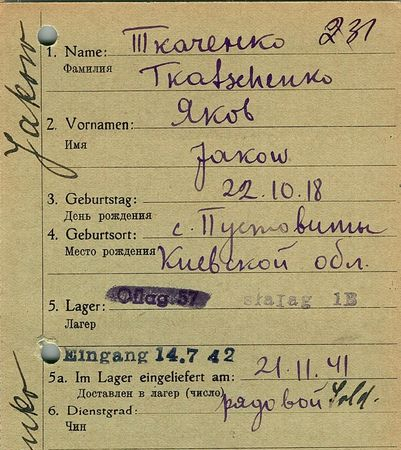 231
1. Name: Ткаченко
Фамилия
Tkatschenko
2. Vornamen: Яков
Имя
Jakow
3. Geburtstag: 22.10.18
День рождения
4. Geburtsort: с. Пустовиты
Место рождения Киевской обл.
5. Lager: Oflag 57 stalag 1B
Лагер
Eingang 14.7 42
5a. Im Lager eingeliefert am: 21.11.41
Доставлен в лагер (число)
6. Dienstgrad: рядовой Sold.
Чин
Jakow
nko